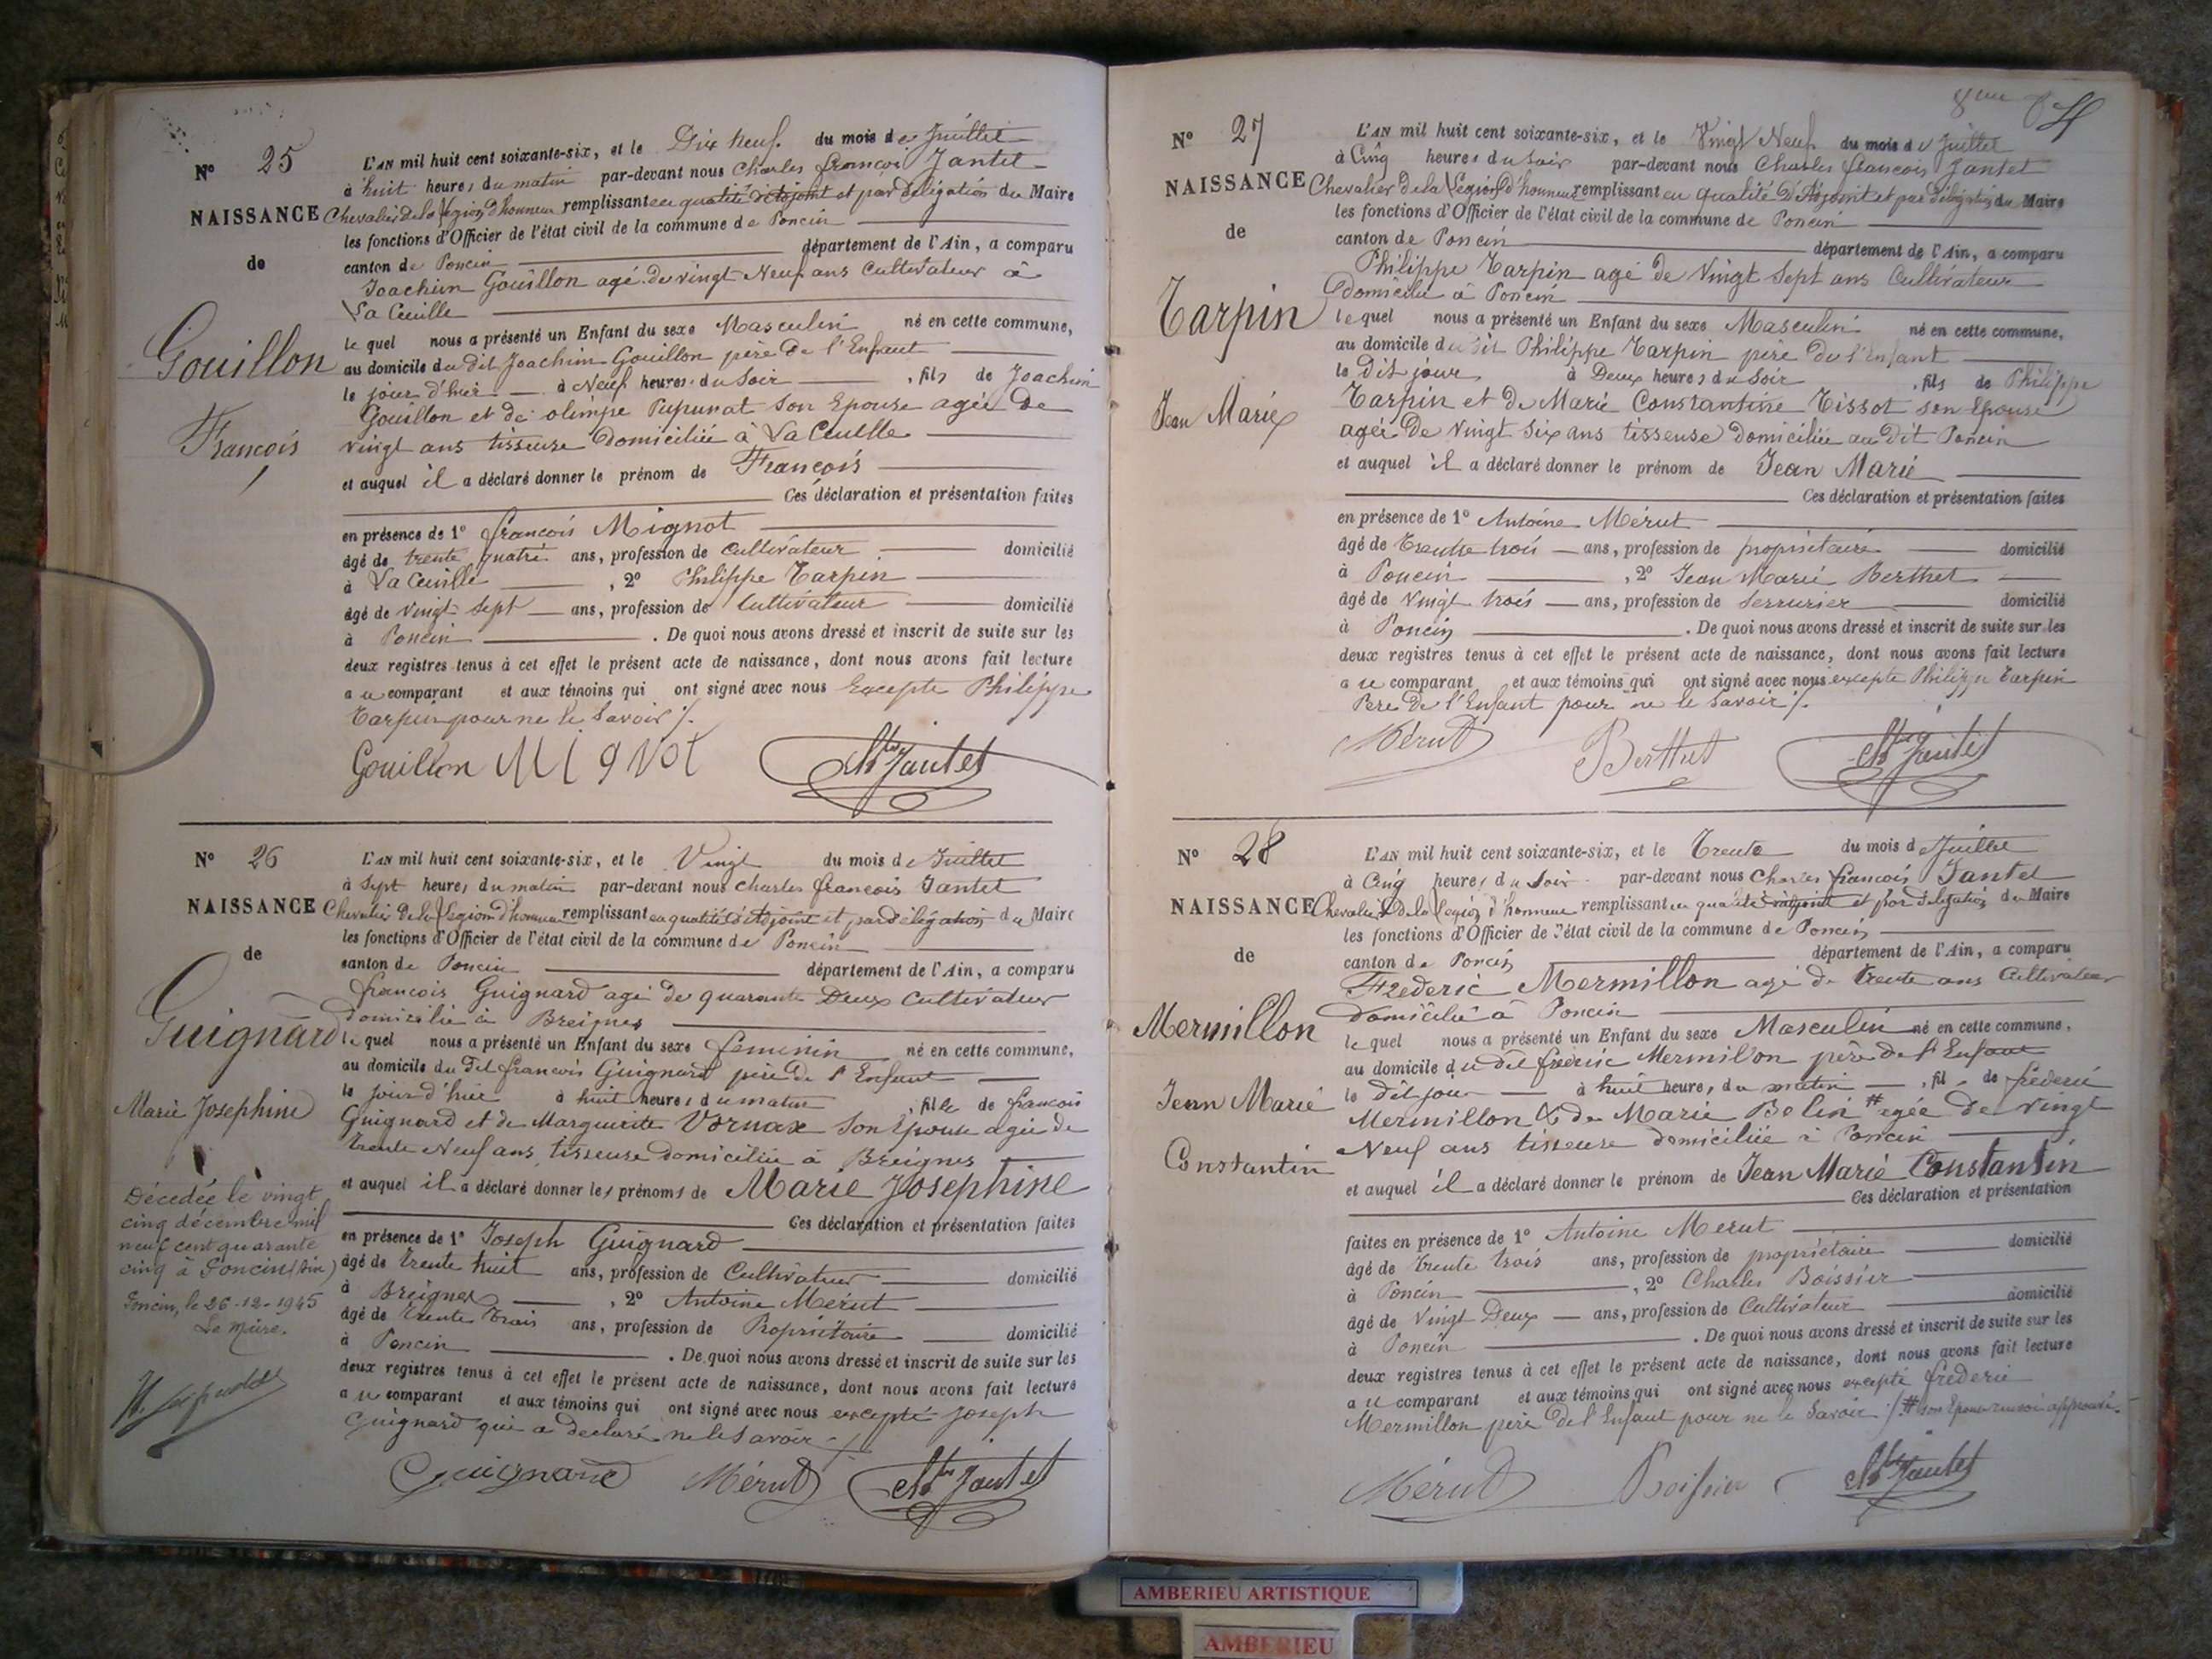 N° 25
NAISSANCE
de
Gouillon
François
L'AN mil huit cent soixante-six, et le Dix neuf du mois de Juillet
à huit heures du matin par-devant nous Charles françois Jantet
Chevalier de la Légion d'honneur remplissant en qualité d'adjoint et par délégation du Maire
les fonctions d'Officier de l'état civil de la commune de Poncin
canton de Poncin département de l'Ain, a comparu
Joachim Gouillon agé de vingt Neuf ans Cultivateur à
La Cueille
le quel nous a présenté un Enfant du sexe Masculin né en cette commune,
au domicile du dit Joachim Gouillon père de l'Enfant
le jour d'hier à Neuf heures du Soir , fils de Joachim
Gouillon et de olimpe Pupunat son Epouse agée de
vingt ans tisseuse Domiciliée à La Cueille
et auquel il a déclaré donner le prénom de François
Ces déclaration et présentation faites
en présence de 1° françois Mignot
âgé de trente quatre ans, profession de Cultivateur domicilié
à La Cueille , 2° Philippe Tarpin
âgé de vingt sept ans, profession de Cultivateur domicilié
à Poncin . De quoi nous avons dressé et inscrit de suite sur les
deux registres tenus à cet effet le présent acte de naissance, dont nous avons fait lecture
au comparant et aux témoins qui ont signé avec nous Excepte Philippe
Tarpin pour ne le Savoir ./.
Gouillon MIgNot Ch Jantet
N° 26
NAISSANCE
de
Guignard
Marie Josephine
Décédée le vingt
cinq décembre mil
neuf cent quarante
cinq à Poncin (Ain)
Poncin, le 26-12-1945
Le Maire.
L'AN mil huit cent soixante-six, et le Vingt du mois de Juillet
à Sept heures du matin par-devant nous Charles françois Jantet
Chevalier de la Légion d'honneur remplissant en qualité d'adjoint et par délégation du Maire
les fonctions d'Officier de l'état civil de la commune de Poncin
canton de Poncin département de l'Ain, a comparu
françois Guignard agé de quarante Deux Cultivateur
domicilié à Breignes
le quel nous a présenté un Enfant du sexe feminin né en cette commune,
au domicile du Dit françois Guignard père de l'Enfant
le jour d'hier à huit heures du matin , fille de françois
Guignard et de Marguerite Vornax son Epouse agée de
trente Neuf ans, tisseuse domiciliée à Breignes
et auquel il a déclaré donner les prénoms de Marie Josephine
Ces déclaration et présentation faites
en présence de 1° Joseph Guignard
âgé de trente huit ans, profession de Cultivateur domicilié
à Breignes , 2° Antoine Mérut
âgé de trente trois ans, profession de Propriétaire domicilié
à Poncin . De quoi nous avons dressé et inscrit de suite sur les
deux registres tenus à cet effet le présent acte de naissance, dont nous avons fait lecture
au comparant et aux témoins qui ont signé avec nous excepté Joseph
Guignard qui a declaré ne le savoir ./.
Guignard Mérut Ch Jantet
8me
N° 27
NAISSANCE
de
Tarpin
Jean Marie
L'AN mil huit cent soixante-six, et le Vingt Neuf du mois de Juillet
à Cinq heures du Soir par-devant nous Charles françois Jantet
Chevalier de la Légion d'honneur remplissant en qualité D'Adjoint et par délégation du Maire
les fonctions d'Officier de l'état civil de la commune de Poncin
canton de Poncin département de l'Ain, a comparu
Philippe Tarpin agé de Vingt Sept ans Cultivateur
Domicilié à Poncin
le quel nous a présenté un Enfant du sexe Masculin né en cette commune,
au domicile du dit Philippe Tarpin père de l'Enfant
le Dit jour à Deux heures du Soir , fils de Philippe
Tarpin et de Marie Constantine Tissot son Epouse
agée De Vingt Six ans tisseuse domiciliée au Dit Poncin
et auquel il a déclaré donner le prénom de Jean Marie
Ces déclaration et présentation faites
en présence de 1° Antoine Mérut
âgé de Trente trois ans, profession de propriétaire domicilié
à Poncin , 2° Jean Marie Berthet
âgé de Vingt trois ans, profession de Serrurier domicilié
à Poncin . De quoi nous avons dressé et inscrit de suite sur les
deux registres tenus à cet effet le présent acte de naissance, dont nous avons fait lecture
au comparant et aux témoins qui ont signé avec nous excepte Philippe Tarpin
Pere De l'Enfant pour ne le Savoir ./.
Mérut Berthet Ch Jantet
N° 28
NAISSANCE
de
Mermillon
Jean Marie
Constantin
L'AN mil huit cent soixante-six, et le Trente du mois de Juillet
à Cinq heures du Soir par-devant nous Charles françois Jantet
Chevalier de la Légion d'honneur remplissant en qualité d'adjoint et par délégation du Maire
les fonctions d'Officier de l'état civil de la commune de Poncin
canton de Poncin département de l'Ain, a comparu
Frederic Mermillon agé de trente ans Cultivateur
domicilié à Poncin
le quel nous a présenté un Enfant du sexe Masculin né en cette commune,
au domicile du dit frédéric Mermillon père de l'Enfant
le dit jour à huit heures du matin , fils de fréderic
Mermillon & de Marie Belin # agée de vingt
Neuf ans tisseuse domiciliée à Poncin
et auquel il a déclaré donner le prénom de Jean Marie Constantin
Ces déclaration et présentation
faites en présence de 1° Antoine Merut
âgé de trente trois ans, profession de propriétaire domicilié
à Poncin , 2° Charles Boissier
âgé de Vingt Deux ans, profession de Cultivateur domicilié
à Poncin . De quoi nous avons dressé et inscrit de suite sur les
deux registres tenus à cet effet le présent acte de naissance, dont nous avons fait lecture
au comparant et aux témoins qui ont signé avec nous excepté fréderic
Mermillon père de l'Enfant pour ne le Savoir ./. # son Epouse renvoi approuvé.
Mérut Boissier Ch Jantet
AMBERIEU ARTISTIQUE
AMBERIEU